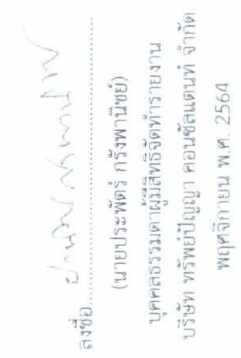 ลงชื่อ
(นายประพัตร์ กรังพานิชย์)
บุคคลธรรมดาผู้มีสิทธิจัดทำรายงาน
บริษัท ทรัพย์ปัญญา คอนซัลแตนท์ จำกัด
พฤศจิกายน พ.ศ. 2564